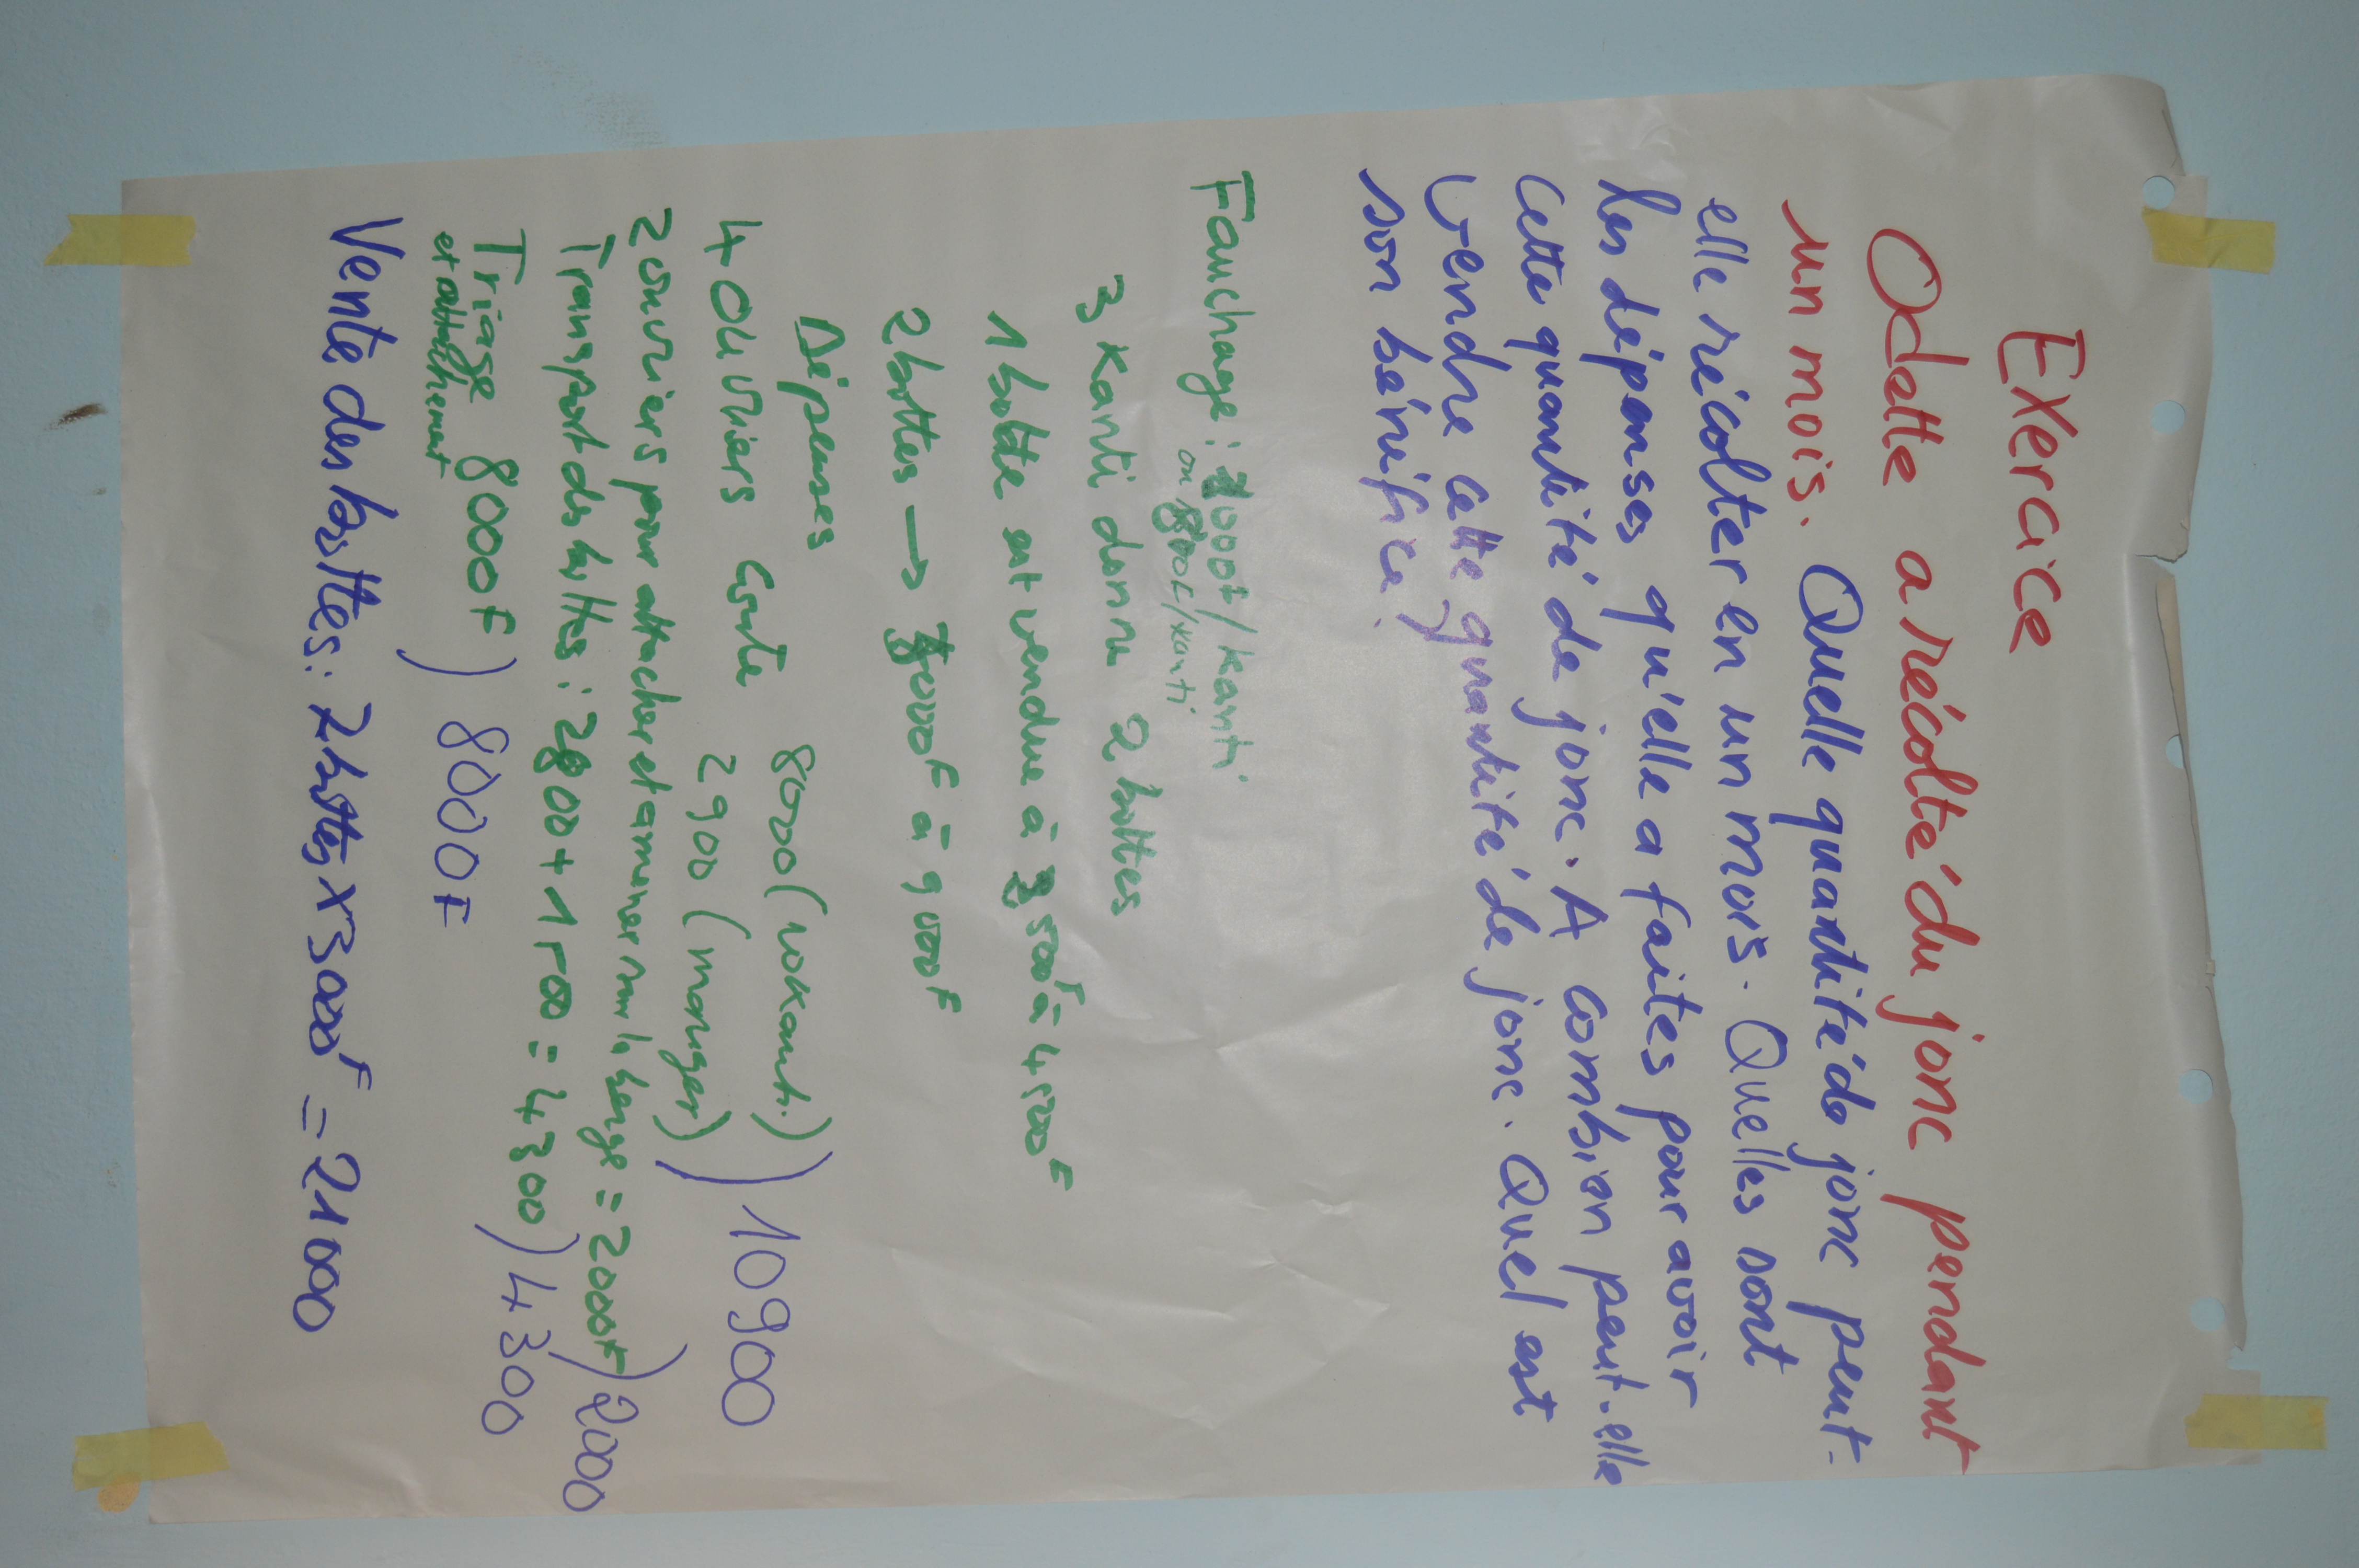 Exercice
Odette a récolté du jonc pendant
un mois. Quelle quantité de jonc peut-
elle récolter en un mois. Quelles sont
les dépenses qu'elle a faites pour avoir
cette quantité de jonc. A combien peut-elle
vendre cette quantité de jonc. Quel est
son bénéfice?
Fauchage: 1000F/kanti
ou 800F/kanti
3 kanti donne 2 bottes
1 botte est vendue à 3500F à 4500F
2 bottes → 7000F à 9000F
Dépenses
4 ouvriers coûte 8000 (10 kanti)
2900 (manger) ) 10900
2 ouvriers pour attacher et amener sur la berge = 2000F ) 2000
Transport des bottes: 2800 + 1500 = 4300 ) 4300
Triage 8000F ) 8000F
et attachement
Vente des bottes: 7 bottes x 3000F = 21000